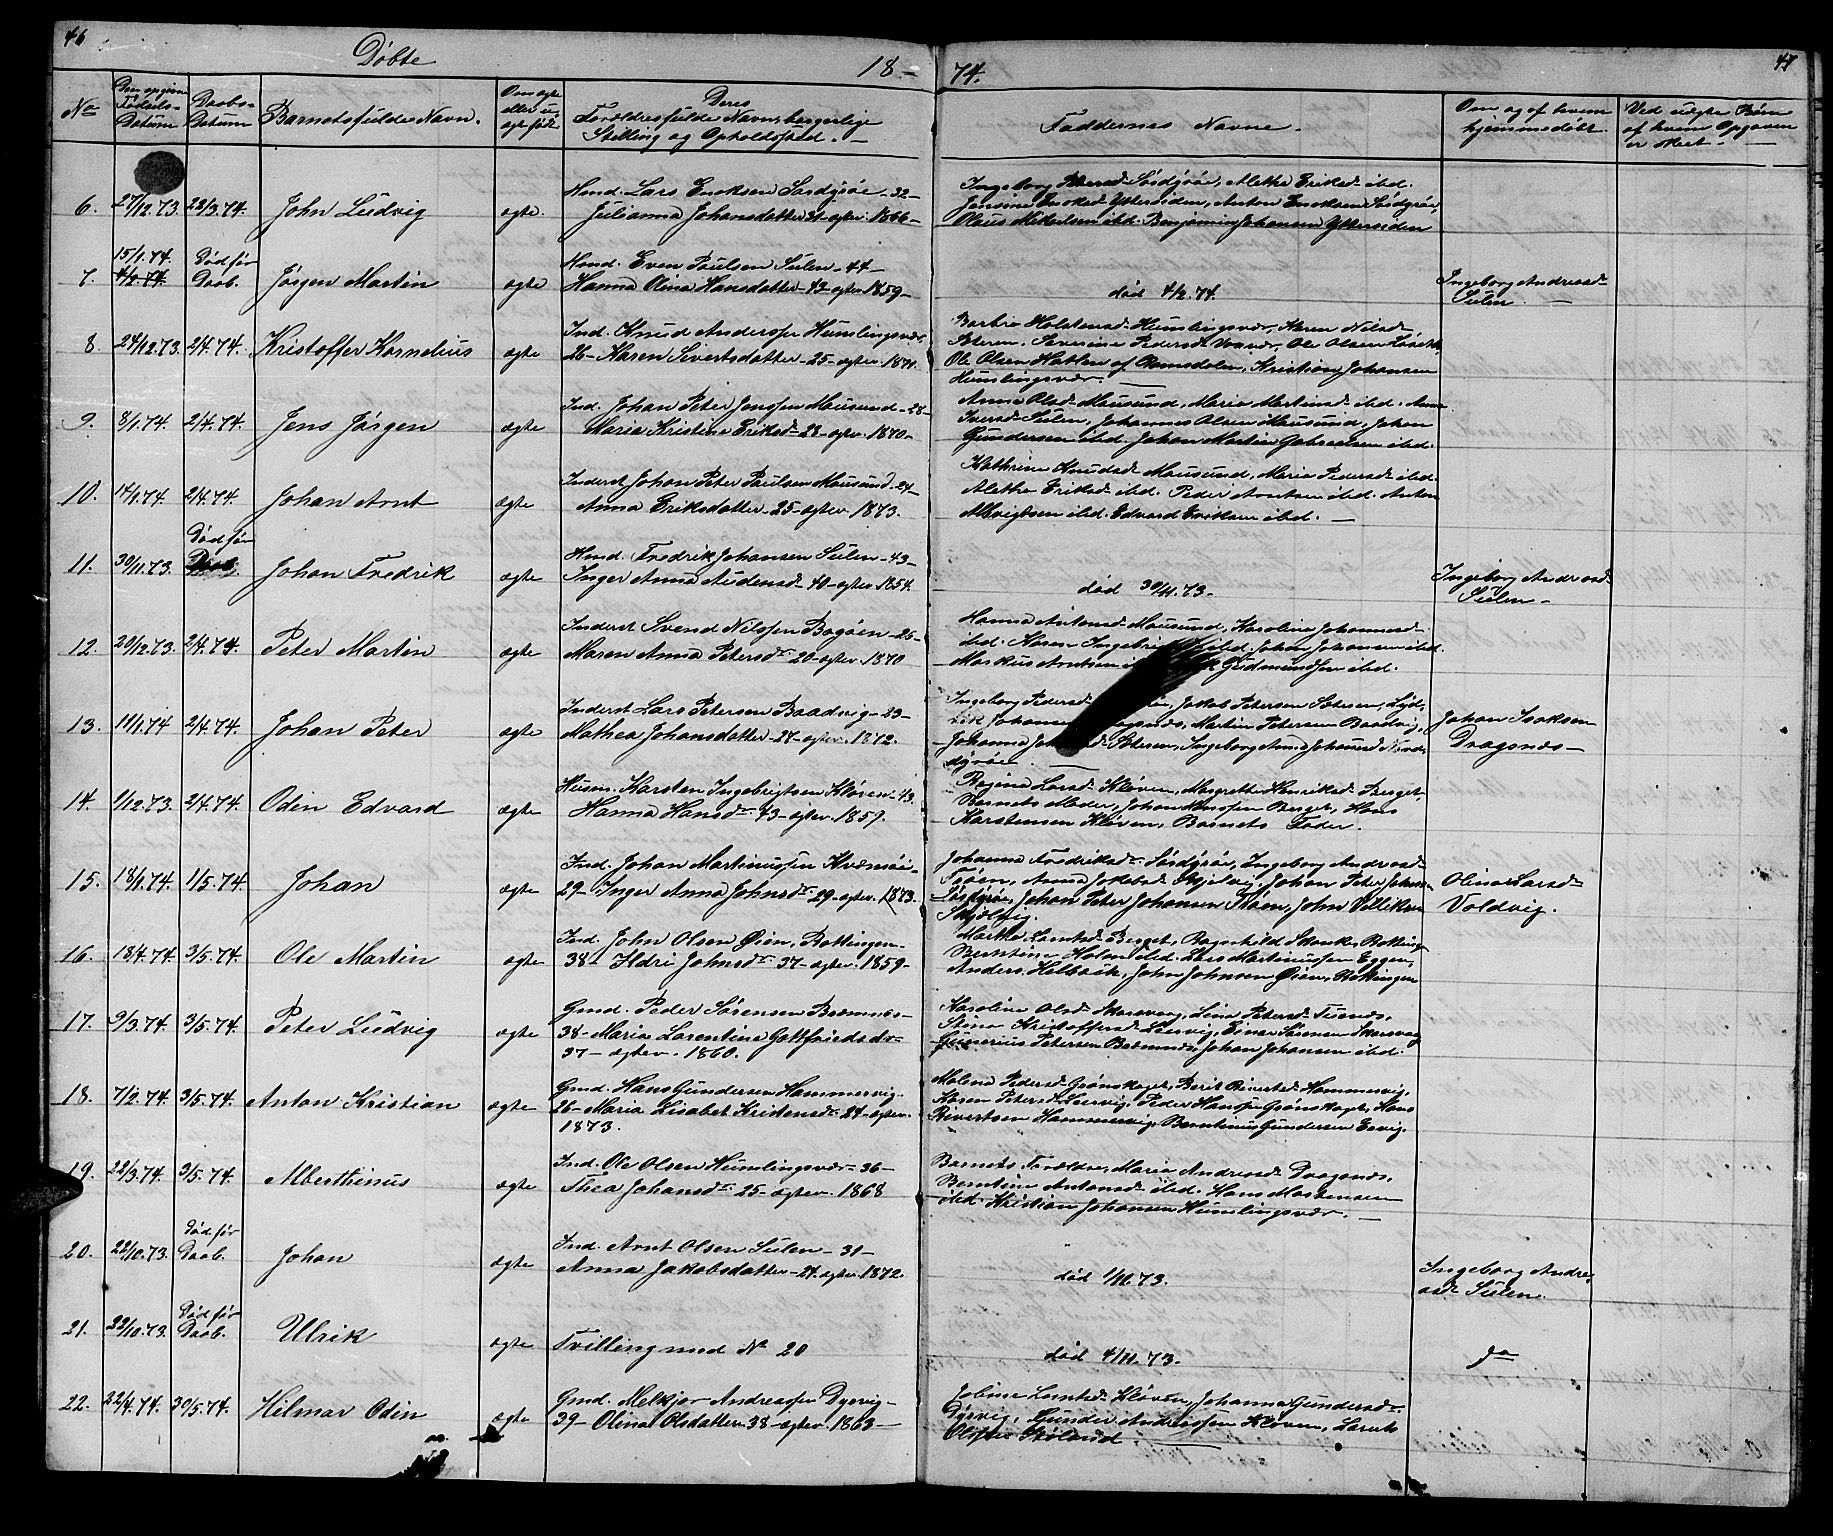 46
Døbte
18-
74.
47
No
Den opgivne Fødsels-Datum
Daabs-Datum
Barnets fulde Navn.
Om ægte eller uægte født
Deres Forældres fulde Navn, borgerlige Stilling og Opholdssted. -
Faddernes Navne -
Om og af hvem hjemmedøbt.
Ved uægte Børn af hvem Opgaven er skeet -
6. 27/12.73. 22/3.74. John Ludvig ægte.
Hmd. Lars Enoksen Sørdyrøe - 32 -
Julianna Johansdatter 31 - ægtev. 1866 -
Ingeborg Sørdyrøe, Alethe Eriksd. ibd.
Jensine Enoksd. Yttersiden, Anton Enoksen Sørdyrøe,
Olaus Mikkelsen ibd. Benjamin Johansen Yttersiden
7. 15/1.74. 4/2.74 Død før Daab. Jørgen Martin ægte
Hmd. Even Paulsen Sulen - 44 -
Hanna Olina Hansdatter - 43 - ægtev. 1859 -
død 4/2.74.
Ingeborg Andreasd. Sulen -
8. 24/12.73. 2/4.74. Kristoffer Kornelius ægte
Ind. Knud Anderssen Humlingsvær,
26 - Karen Sivertsdatter - 25 - ægtev. 1871.
Holstensd. Humlingsvær, Karen Nilsd.
Severine Pedersd. Ole Olsen
Ole Olsen Hatlen af Romsdalen, Kristian Johansen
Humlingsvær. -
9. 8/1.74. 2/4.74. Jens Jørgen ægte
Ind. Johan Peter Jenssen Mausund - 28 -
Maria Kristine Eriksd. - 28 - ægtev. 1870 -
Anna Olsd. Mausund, Maria Martinsd. ibd.
Iversd. Sulen, Johannes Olsen Mausund, Johan
Gundersen ibd. Johan Martin Gabrielsen ibd.
10. 14/1.74 2/4.74. Johan Arnt ægte
Inderst Johan Peter Paulsen Mausund - 24 -
Anna Eriksdatter - 25 - ægtev. 1873.
Kathrine Knudsd. Mausund, Maria Pedersd. ibd.
Alethe Eriksd. ibd. Peder Arntsen ibd. Anton
ibd. Edvard Eriksen ibd. -
11. 30/11.73. Død før Daab. Johan Fredrik ægte
Hmd. Fredrik Johansen Sulen - 43 -
Inger Anna Audensd. - 40 - ægtev. 1854.
død 30/11.73 -
Ingeborg Andreasd. Sulen -
12 20/12.73. 2/4.74. Peter Martin ægte
Inderst Svend Nilssen Bogøen - 26 -
Maren Anna Petersd. 20 - ægtev. 1870
Hanna Antonsd. Mausund, Karoline Johannesd.
ibd. Karen ibd. Johan Johansen ibd.
Markus Arntsen Gudmundsen ibd.
13. 11/1.74 2/4.74. Johan Peter ægte
Inderst Lars Petersen Baadvig - 23 -
Mathea Johansdatter - 27 - ægtev. 1872.
Ingeborg Pedersd. Jakob Petersen
Johansen Martin Petersen Baadvig,
Johanna Ingeborg Anna
Johan Isaksen Dragsnæs -
14. 1/12.73. 2/4.74. Odin Edvard ægte
Husm. Karsten Ingebrigtsen Kløven - 43.
Hanna Hansd. 43 - ægtev. 1859.
Regine Larsd. Kløven, Margrethe Henriksd. Berget,
Barnets Moder, Johan Berget, Hans
Karstensen Kløven, Barnets Fader.
15. 18/1.74. 1/5.74 Johan ægte
Ind. Johan Martinussen Kvæmøe -
29 - Inger Anna Johnsd. 29 - ægtev. 1873.
Johanna Fredriksd. Sørdyrøe, Ingeborg Andreasd.
Anna Jakobsd. Skjelvig, Johan Peter
Sørdyrøe, Johan Peter Johansen John Villiksen
Olina Larsd. Valdvig.
16. 18/4.74. 3/5.74. Ole Martin ægte
Ind. John Olsen Øien, Bottingen -
38 - Ildri Johnsd. 37 - ægtev. 1859 -
Marthe Berget, Ragnhild Skanke, Botting
Berntine Holm ibd. Lars Martinussen Eggen,
Anders Helbæk, John Johnsen Øien, Bottingen
17. 9/3.74. 3/5.74. Peter Ludvig ægte
Gmd. Peder Sørensen Bremnes -
38 - Maria Larentine Gottfriedsdr -
37 - ægtev. 1860.
Karoline Olsd. Skarsvaag, Lina Petersd. Tusnæs,
Stina Kristoffersd. Leervig, Einar Sørensen Skarsvaag
Gunerius Petersen Bremnes, Johan Johansen ibd.
18. 7/2.74. 3/5.74. Anton Kristian ægte
Gmd. Hans Gundersen Hammervig -
26 - Maria Lisabet Kristensd. 24 - ægtev.
1873.
Malena Pedersd. Grønskaget, Berit Sivertsd. Hammervig,
Karen Petersd. Leervig, Peder Hanssen Grønskaget, Hans
Sivertsen Hammervig, Berntinus Gundersen Esvig.
19. 22/3.74. 3/5.74. Alberthinus ægte
Ind. Ole Olsen Humlingsvær - 36 -
Thea Johansd. 25 - ægtev. 1868
Barnets Forældre, Maria Andreasd. Dragsnæs,
Berntine Antonsd. ibd. Hans Mortensen
ibd. Kristian Johansen Humlingsvær. -
20. 22/10.73. Død før Daab. Johan ægte
Ind. Arnt Olsen Sulen - 31 -
Anna Jakobsdatter - 24. ægtev. 1872.
død 1/11.73.
Ingeborg Andreasd. Sulen.
21. 22/10.73. Død før Daab. Ulrik ægte
Tvilling med No 20
død 4/11.73.
do
22. 22/4.74. 30/5.74. Hilmar Odin ægte
Gmd. Melkior Andreassen Dyrvig -
39 - Olina Olsdatter 38 - ægtev. 1863 -
Jobine Kløven, Johanna Gundersd.
Dyrvig, Gunder Andreassen Kløven, Laruts